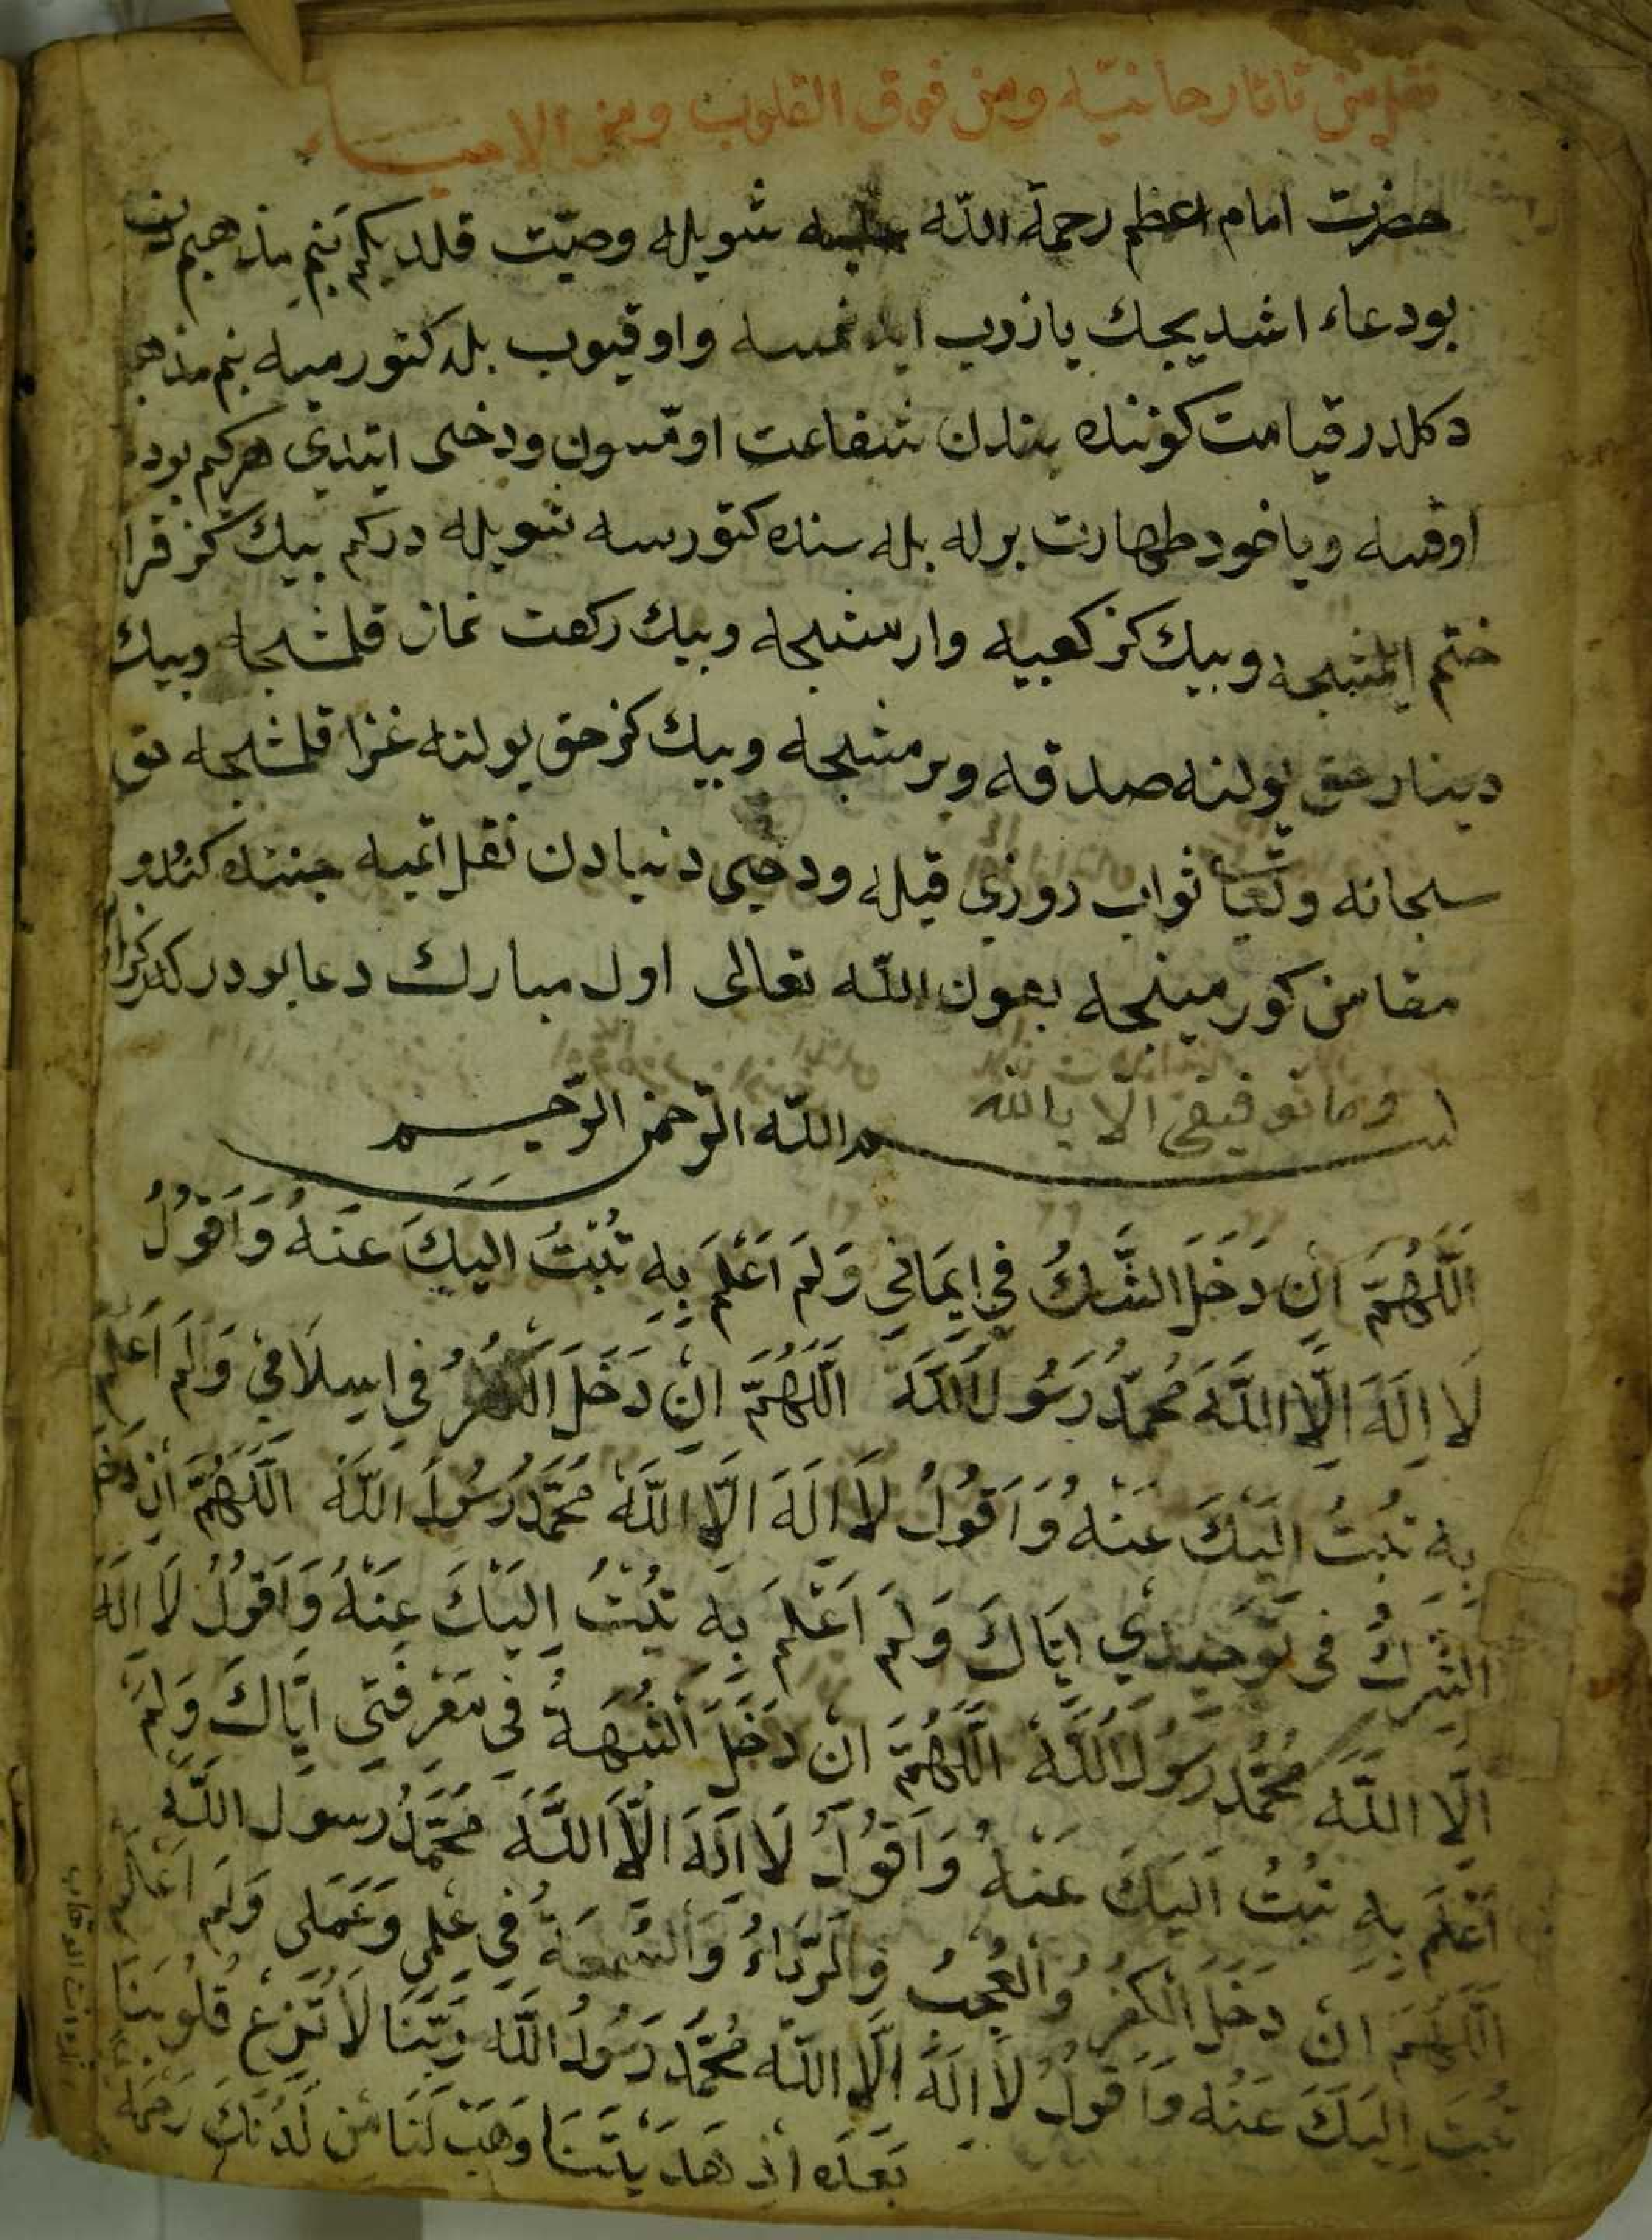 نقل من تاتارخانيّه ومن قوق القلوب ومن الاحيـــاء
حضرت امام اعظم رحمة اللّه عليه شويله وصيّت قلدىكم بنم مذهبم
بودعاء اشديجك يازوب ايدنمسه واوقيوب بله كتورميه بنم مذهبـ
دكلدر قيامت كوننده بندن شفاعت اومّسون ودخى ايتدى هركم بود
اوقسه وياخود طهارت برله بله سنده كتورسه شويله دركم بيك كز قرا
ختم ايلمشجه وبيك كز كعبيه وارمشجه وبيك ركعت نماز قلمشجه وبيك
دينار حق يولنه صدقه ويرمشجه وبيك كز حق يولنه غزا قلمشجه حق
سبحانه وتعا ثواب روزى قيله ودخى دنيادن نقل اتميه جنتده كندو
مقامن كورمينجه بعون اللّه تعالى اول مبارك دعا بودر
وما توفيقى الا باالله
بسم اللّه الرّحمن الرّحيم
اَللّٰهُمَّ اِنْ دَخَلَ الشَّكُ فِى اِيمَانِى وَلَمْ اَعْلَمْ بِهِ تُبْتُ اِلَيكَ عَنْهُ وَاَقُولُ
لَا اِلَهَ اِلَّا اللَّهَ مُحَمَّدُ رَسُولُ اللَّهَ اَللّٰهُمَّ اِنْ دَخَلَ الْكُفْرُ فِى اِسِلَامِى وَلَمْ اَعْلَمْ
بِهِ تُبْتُ اِلَيْكَ عَنْهُ وَاَقُولُ لَا اِلَهَ اِلَّا اللَّهُ مُحَمَّدُ رَسُولُ اللَّهُ اَللّٰهُمَّ اِنْ دَخَلَ
الشِّركُ فِى تَوْحِيدِي اِيَّاكَ وَلَمْ اَعْلَمْ بِهِ تُبْتُ اِلَيْكَ عَنْهُ وَاَقُولُ لَا اِلَهَ
اِلَّا اللَّهُ مُحَمَّدُ رَسُولُ اللَّهُ اَللّٰهُمَّ اِنْ دَخَلَ الشُّبْهَةُ فِى مَعْرِفَتِى اِيَّاكَ وَلَمْ
اَعْلَمْ بِهِ تُبْتُ اِلَيْكَ عَنْهُ وَاَقُولُ لَا اِلَهَ اِلَّا اللَّهُ مُحَمَّدُ رسول اللَّهُ
اَللّٰهُمَّ اِنْ دَخَلَ الْكُفْرُ وَالْعُجْبُ وَالرِّيَاءُ وَالسُّمْعَةُ فِى عِلْمِى وَعَمَلِى وَلَمْ اَعْلَمْ
تُبْتُ اِلَيْكَ عَنْهُ وَاَقُولُ لَا اِلَهَ اِلَّا اللَّهُ مُحَمَّدُ رَسُولُ اللَّهُ رَبَّنَا لَا تُزِغْ قُلُوبَنَا
بَعْدَ اِذْ هَدَيْتَنَا وَهَبْ لَنَا مِن لَدُنْكَ رَحْمَةً